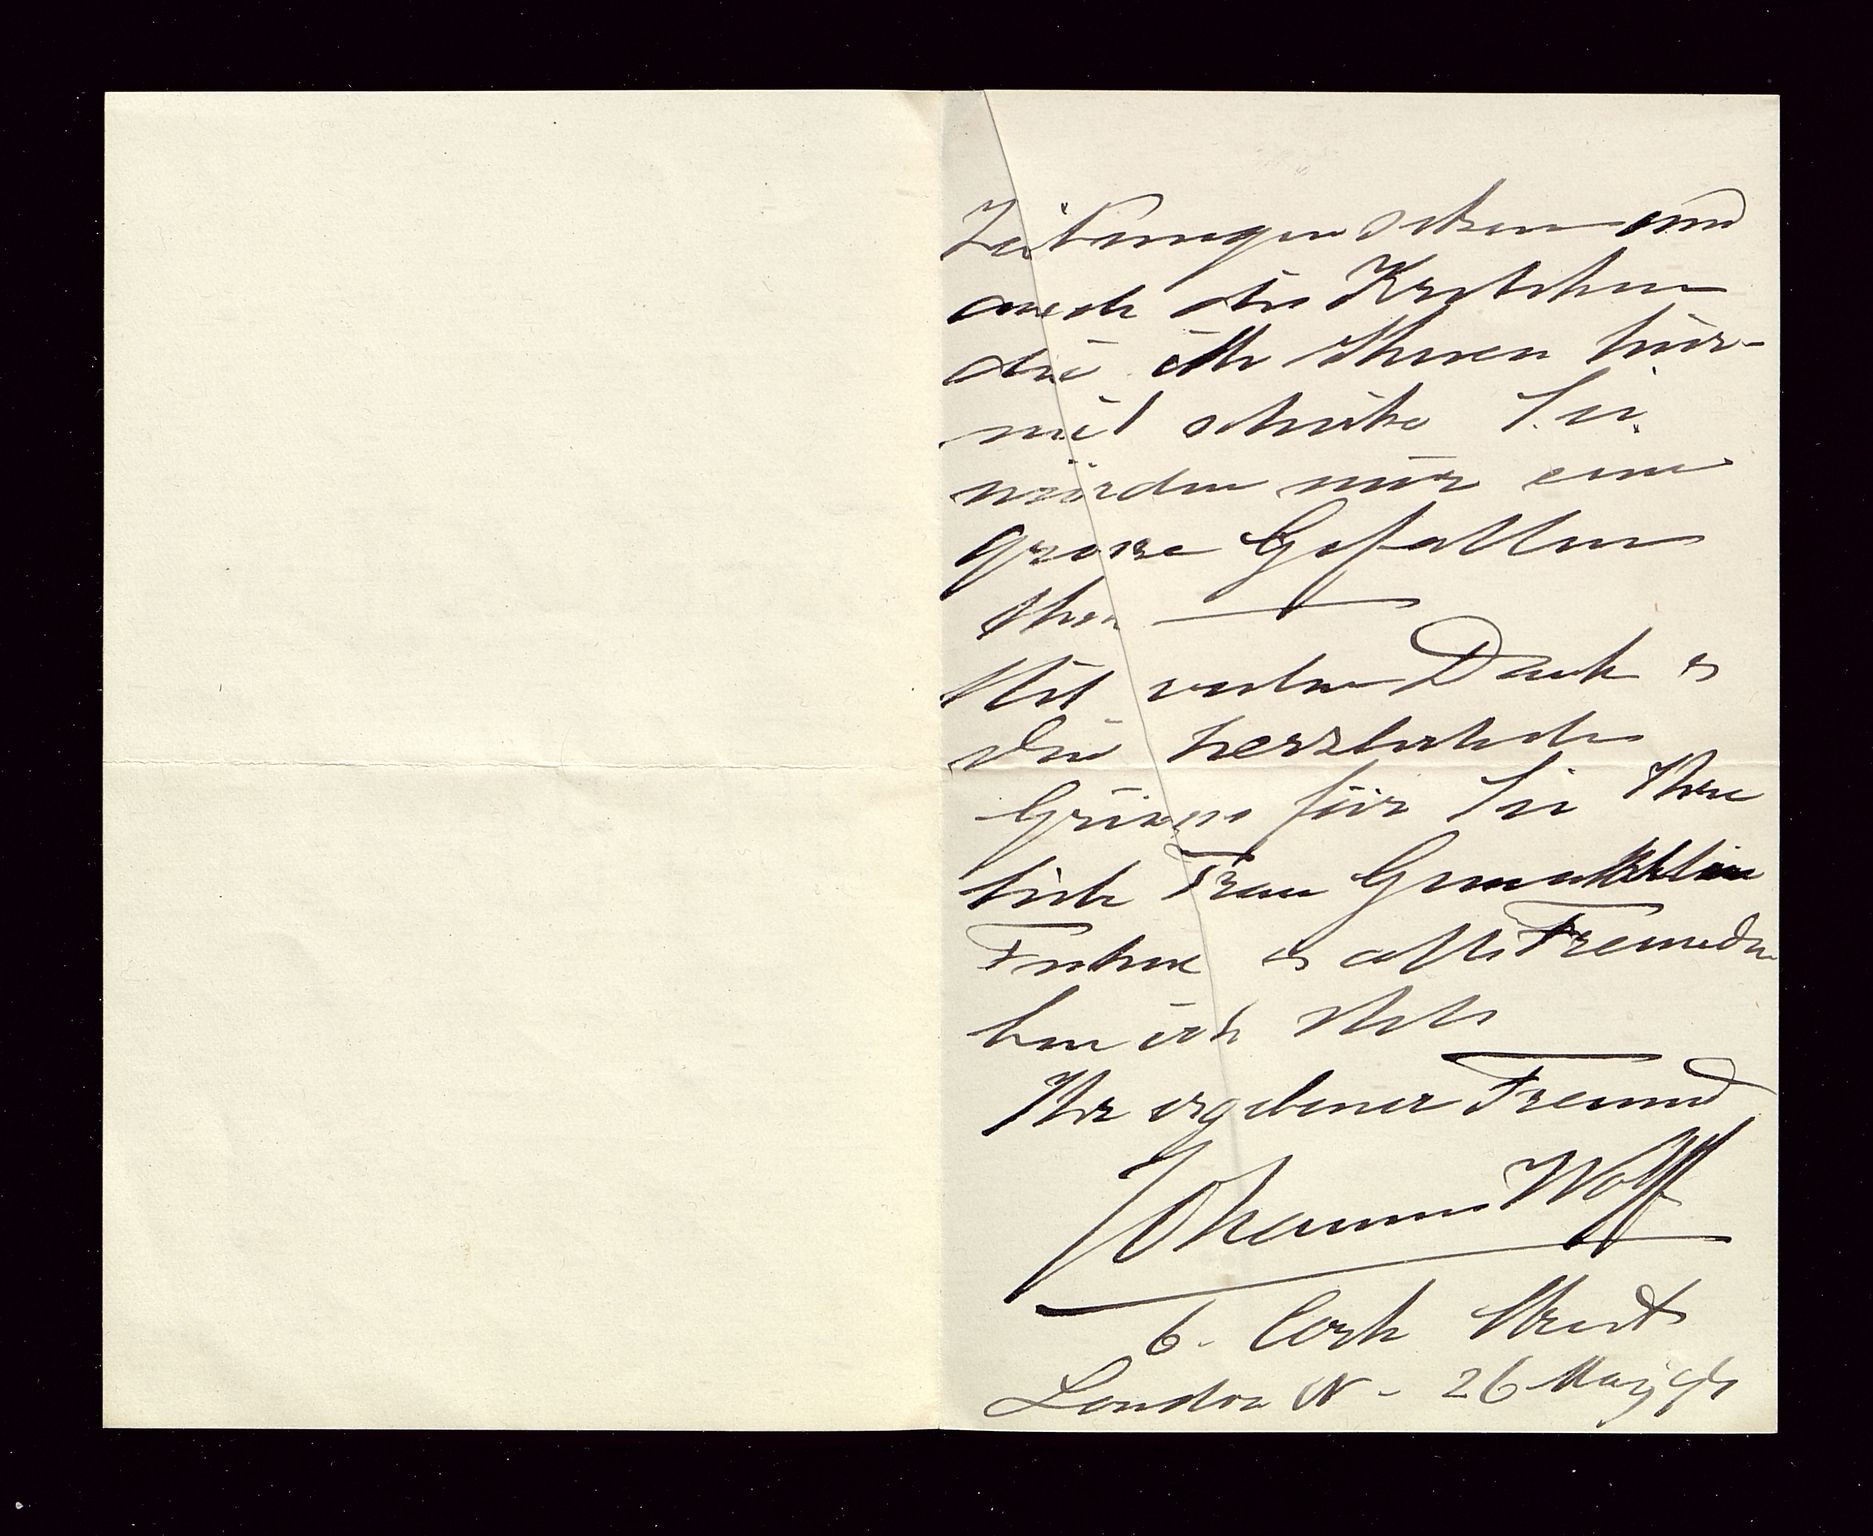 Zeitungen setzen und
auch die Kritiken
die ich Ihnen hier-
mit schicke Sie
würden mir eine
grosse Gefallen
thun —
Mit vielen Dank &
die herzlichste
Grüsse für Sie Ihre
liebe Frau Gemahlin
& alle Freunden
bin ich stets
Ihr ergebener Freund
Johannes Wolff
6. Cork Street
London W - 26 May